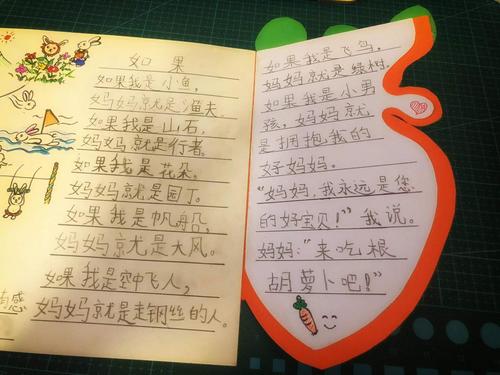 如果
如果我是小鱼，
妈妈就是渔夫。
如果我是山石，
妈妈就是行者。
如果我是花朵。
妈妈就是园丁。
如果我是帆船，
妈妈就是大风。
如果我是空中飞人，
妈妈就是走钢丝的人。
感
如果我是飞鸟，
妈妈就是绿树，
如果我是小男
孩，妈妈就
是拥抱我的
好妈妈。
“妈妈，我永远是您
的好宝贝！”我说。
妈妈：“来吃根
胡萝卜吧！”